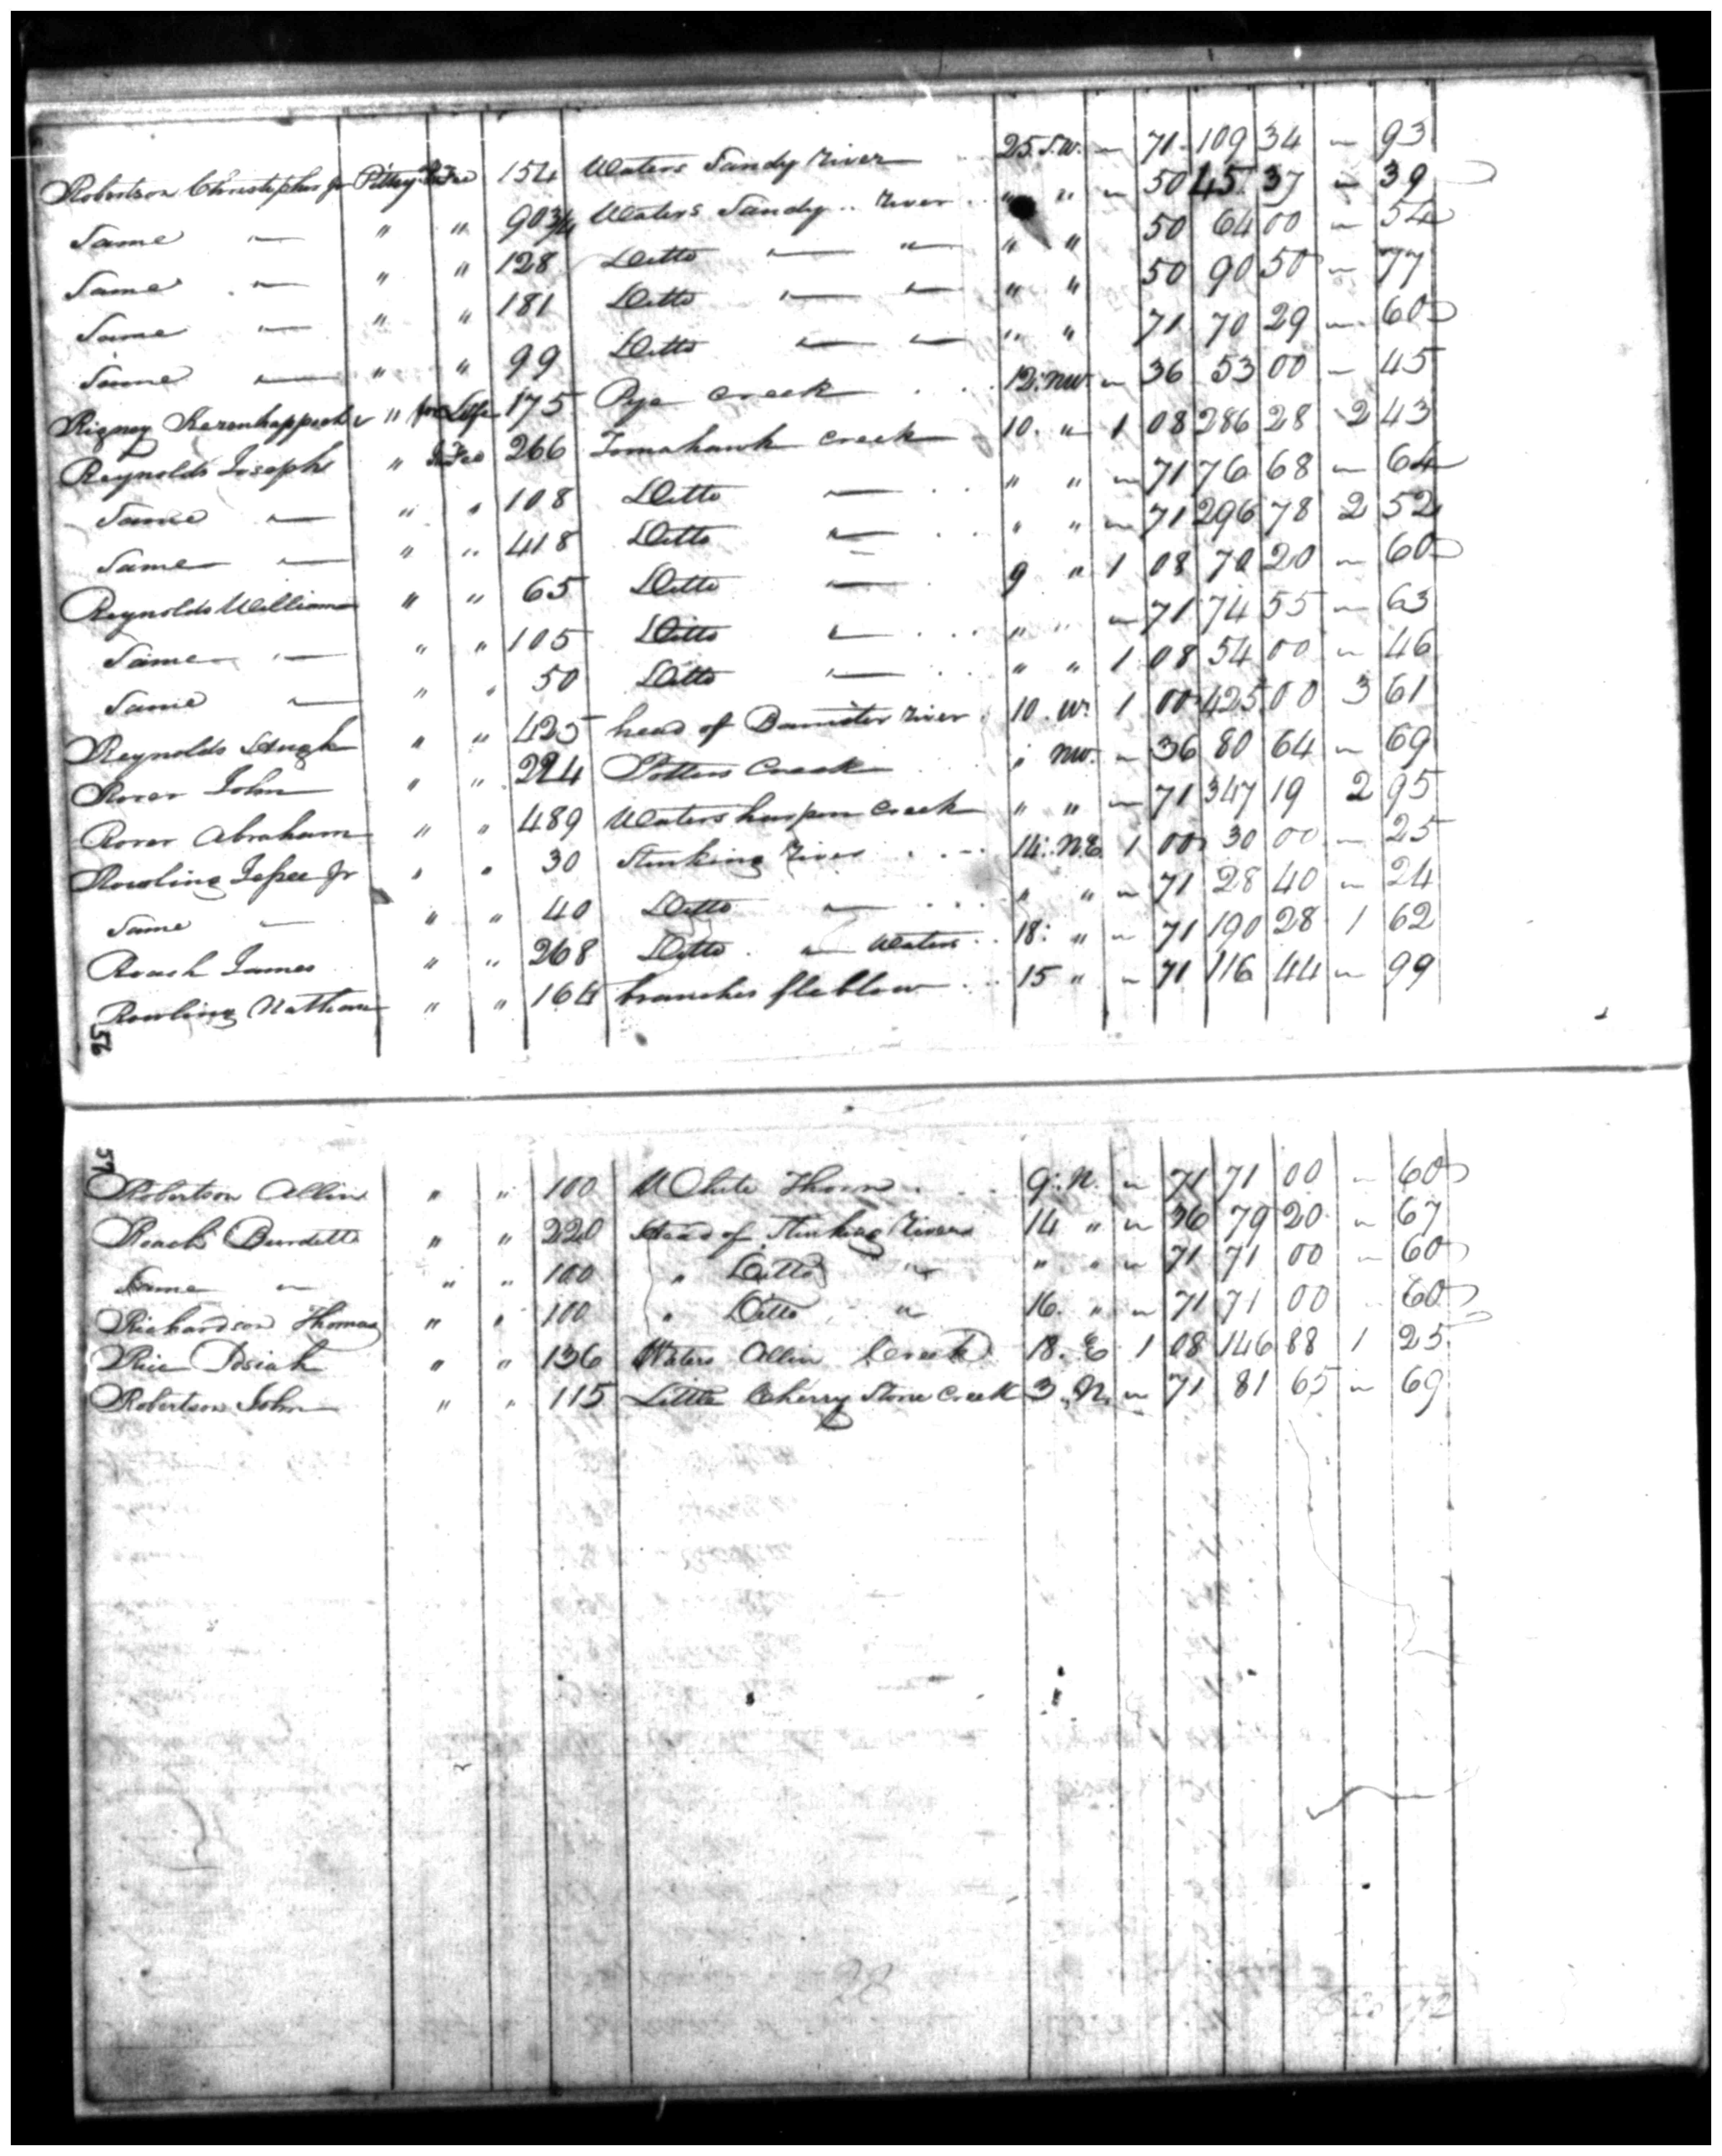 Robertson Christopher Jr Pittsy In Fee 154 Waters Sandy River 25. S.W. - 71 109 34 - 93
Same - " " 90 3/4 Waters Sandy River " " - 50 45 37 - 39
Same - " " 128 Ditto - " " " 50 64 00 - 54
Same - " " 181 Ditto - - " " 50 90 50 - 77
Same - " " 99 Ditto - - " " 71 70 29 - 60
Rigney " for Life 175 Pye Creek 12. NW - 36 53 00 - 45
Reynolds Joseph " In Fee 266 Tomahawk Creek 10. " 1 08 286 28 2 43
Same - " " 108 Ditto - " " - 71 76 68 - 64
Same - " " 418 Ditto - " " - 71 296 78 2 52
Reynolds William " " 65 Ditto - 9 " 1 08 70 20 - 60
Same - " " 105 Ditto - " " - 71 74 55 - 63
Same - " " 50 Ditto - " " 1 08 54 00 - 46
Reynolds Hugh " " 425 head of Banister River 10. W. 1 00 425 00 3 61
Rorer John " " 224 Potters Creek " NW. - 36 80 64 - 69
Rorer Abraham " " 489 Waters harpen Creek " " - 71 347 19 2 95
Rowling Jesse Jr " " 30 Stinking River 14. N.E 1 00 30 00 - 25
Same - " " 40 Ditto - " " - 71 28 40 - 24
Roach James " " 268 Ditto - Waters 18. " - 71 190 28 1 62
Rowling Nathan " " 164 branches 15 " - 71 116 44 - 99
56
57
Robertson Allin " " 100 White Thorn 9. N. - 71 71 00 - 60
Roach Burdette " " 220 Head of Stinking River 14 " - 36 79 20 - 67
Same - " " 100 " Ditto " " " - 71 71 00 - 60
Richardson Thomas " " 100 " Ditto " 16. " - 71 71 00 - 60
Rice Josiah " " 136 Waters Allin Creek 18. E 1 08 146 88 1 25
Robertson John " " 115 Little Cherry Stone Creek 3. N. - 71 81 65 - 69